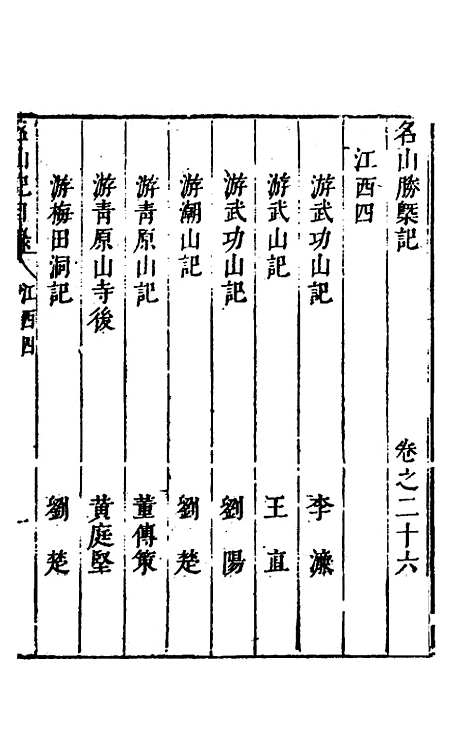 名山勝槩記 卷之二十六
江西四
游武功山記 李濂
游武山記 王直
游武功山記 劉陽
游潮山記 劉楚
游靑原山記 董傳策
游靑原山寺後 黃庭堅
游梅田洞記 劉楚
名山記目錄 江西四 一